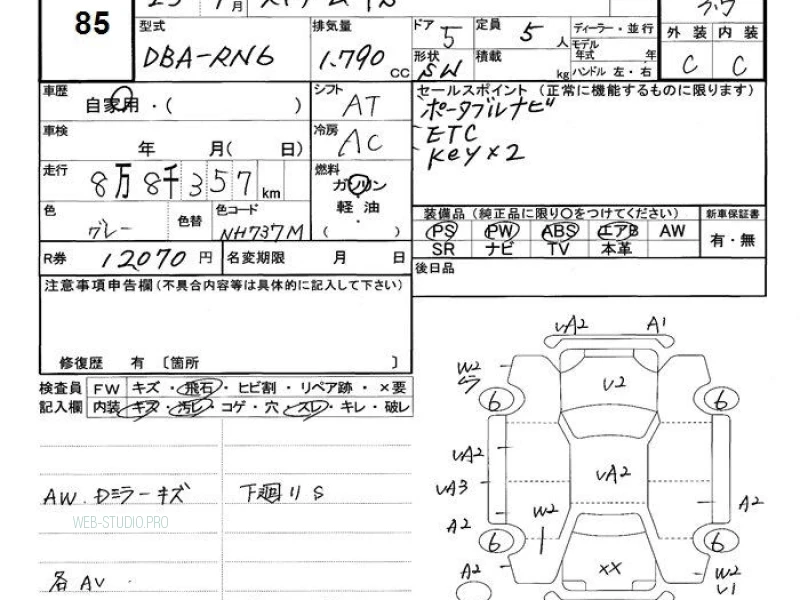 85
型式
DBA-RN6
排気量
1.790 CC
ドア
5
形状
SW
定員
5 人
積載
kg
ディーラー・並行
モデル年式 年
ハンドル 左・右
外装 内装
C C
車歴
自家用・( )
シフト
AT
セールスポイント (正常に機能するものに限ります)
ポータブルナビ
ETC
Key×2
車検
年 月( 日)
冷房
AC
走行
8万8千357km
燃料
ガソリン
軽油
・
( )
色
グレー
色替
色コード
NH737M
装備品 (純正品に限り〇をつけてください)
PS PW ABS エアB AW
SR ナビ TV 本革
新車保証書
有・無
R券 12070 円
名変期限 月 日
後日品
注意事項申告欄(不具合内容等は具体的に記入して下さい)
修復歴 有 〔箇所 〕
検査員 FW キズ・飛石・ヒビ割・リペア跡・×要
記入欄 内装 キズ・汚レ・コゲ・穴・スレ・キレ・破レ
AW. Dミラーキズ
下廻りS
WEB-STUDIO.PRO
各AV
VA2 A1
W2
V2
6 6
VA2
VA2
VA3
A2
W2
A2
6 6
A2
XX
W2
V1